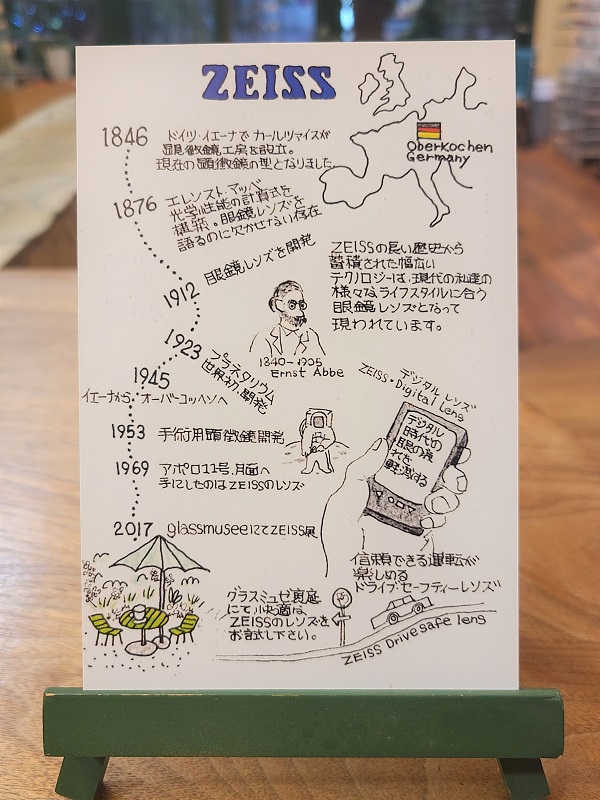 ZEISS
1846
ドイツ・イエーナでカールツァイスが
顕微鏡工房を設立。
現在の顕微鏡の型となりました
Oberkochen
Germany
1876
エレンスト・アッベ
光学性能の計算式を
構築。眼鏡レンズを
語るのに欠かせない存在
1912
眼鏡レンズを開発
ZEISSの長い歴史から
蓄積された幅広い
テクノロジーは、現代の私達の
様々なライフスタイルに合う
眼鏡レンズとなって
現われています。
1840-1905
Ernst Abbe
1923
プラネタリウム
世界初、開発
1945
イエーナから、オーバーコッヘンへ
1953
手術用顕微鏡開発
1969
アポロ11号、月面へ
手にしたのはZEISSのレンズ
デジタルレンズ
ZEISS・Digital Lens
デジタル
時代の
眼の疲
れを
軽減する
2017
glassmuseeにてZEISS展
グラスミュゼ裏庭
にて、快適な
ZEISSのレンズを
お試し下さい。
信頼できる運転が
楽しめる
ドライブセーフティーレンズ
ZEISS Drivesafe lens